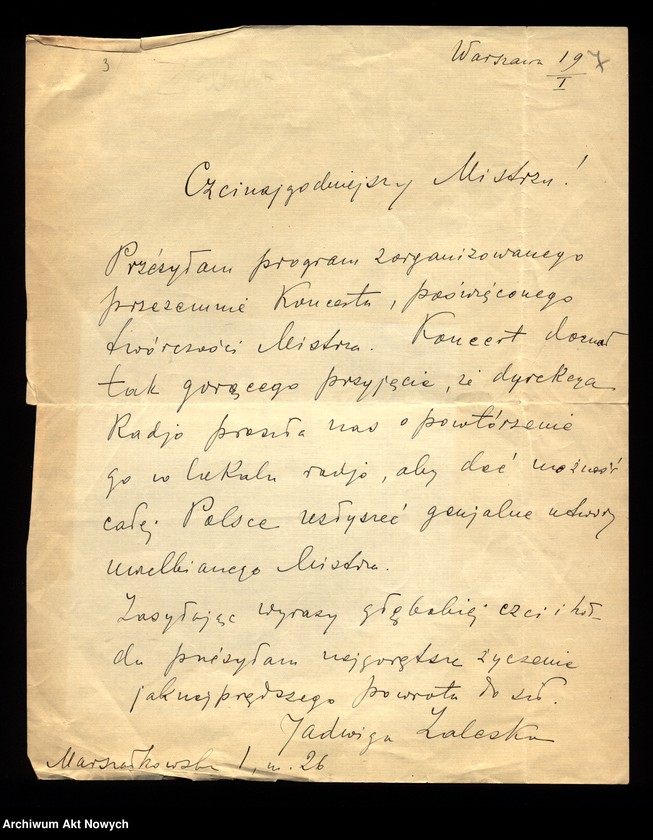 3
Warszawa 19/I
Czcinajgodniejszy Mistrzu!
Przesyłam program zorganizowanego
przezemnie Koncertu, poświęconego
twórczości Mistrza. Koncert doznał
tak gorącego przyjęcia, że dyrekcya
Radjo prosiła nas o powtórzenie
go w lokalu radjo, aby dać możność
całej Polsce usłyszeć genjalne utwory
uwielbianego Mistrza.
Zasyłając wyrazy głębokiej czci i hoł-
du przesyłam najgorętsze życzenia
jaknajprędszego powrotu do sił.
Jadwiga Zaleska
Marszałkowska 1, m. 26
Archiwum Akt Nowych